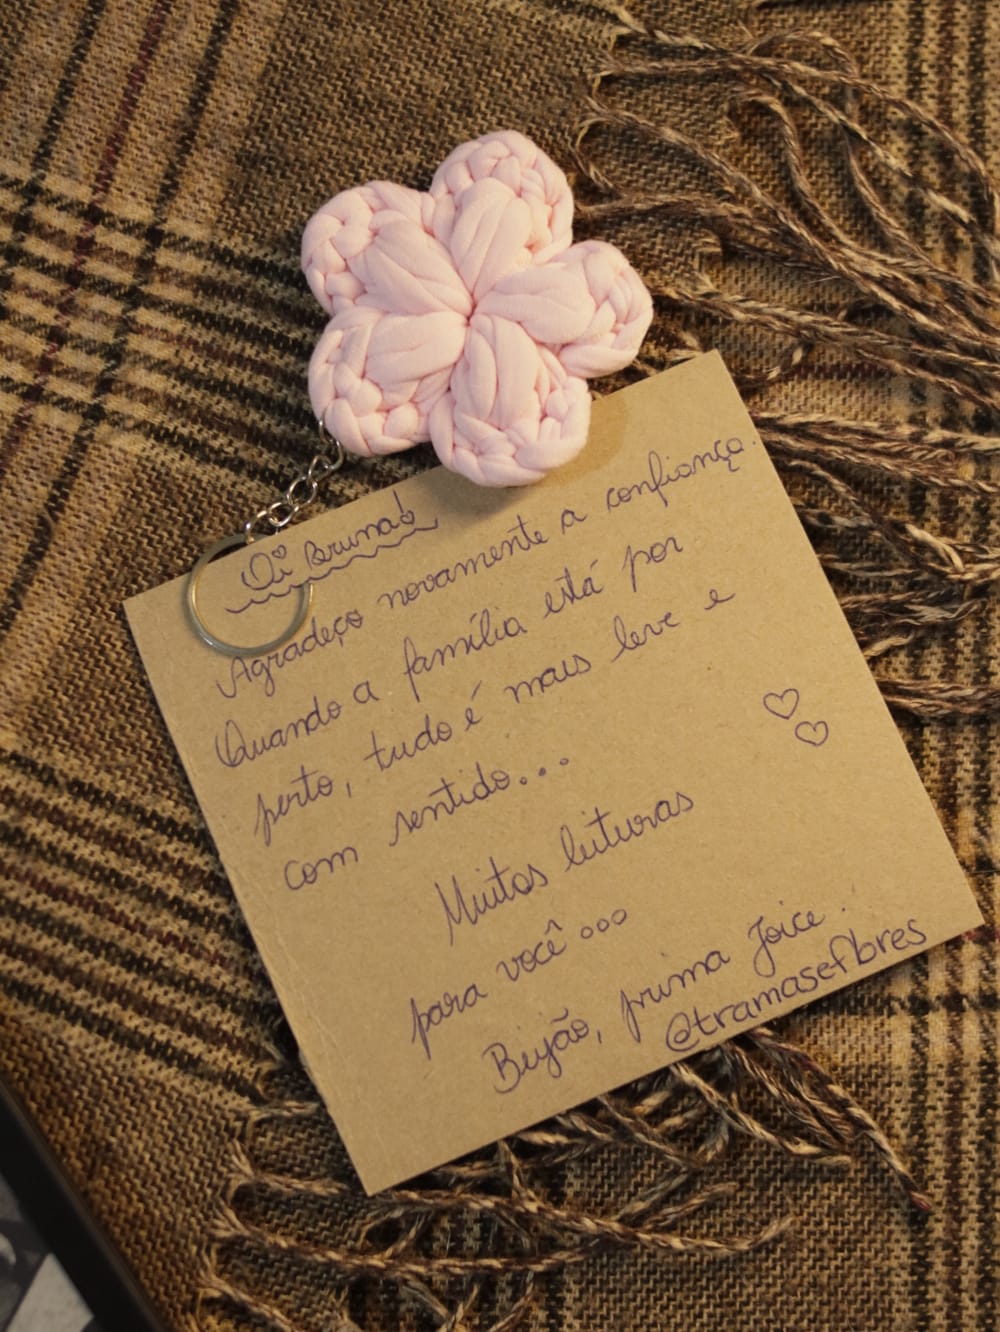 Oi Bruna!
Agradeço novamente a confiança.
Quando a família está por
perto, tudo é mais leve e
com sentido...
Muitas leituras
para você...
Beijão, prima Joice.
@tramaseflores